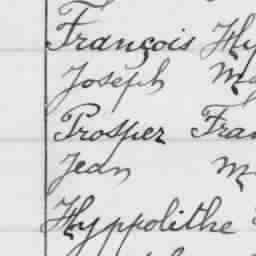 François Hy
Joséph Ma
Prosper Fran
Jean M
Hyppolithe